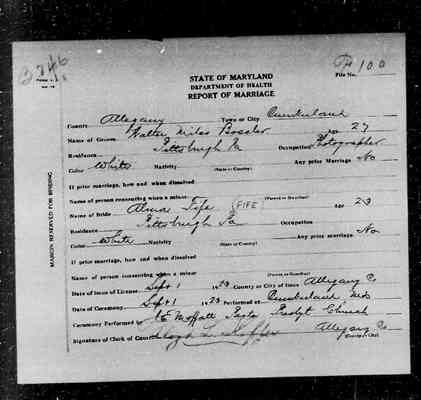 3246
File No. 100
STATE OF MARYLAND
DEPARTMENT OF HEALTH
REPORT OF MARRIAGE
MARGIN RESERVED FOR BINDING
County Allegany Town or City Cumberland
Name of Groom Walter Miles Age 27
Residence Pittsburgh Pa Occupation Photographer
Color White Nativity (State or Country) Any prior Marriage No
If prior marriage, how and when dissolved
Name of person consenting when a minor (Parent or Guardian)
Name of Bride Alma Fife (FIFE) Age 23
Residence Pittsburgh Pa Occupation
Color White Nativity (State or Country) Any prior Marriage No
If prior marriage, how and when dissolved
Name of person consenting when a minor (Parent or Guardian)
Date of Issue of License Sept 1 1923 County or City of Issue Allegany Co
Date of Ceremony Sept 1 1923 Performed at Cumberland Md
Ceremony Performed by Moffatt Presbyt Church
Signature of Clerk of Court Allegany Co